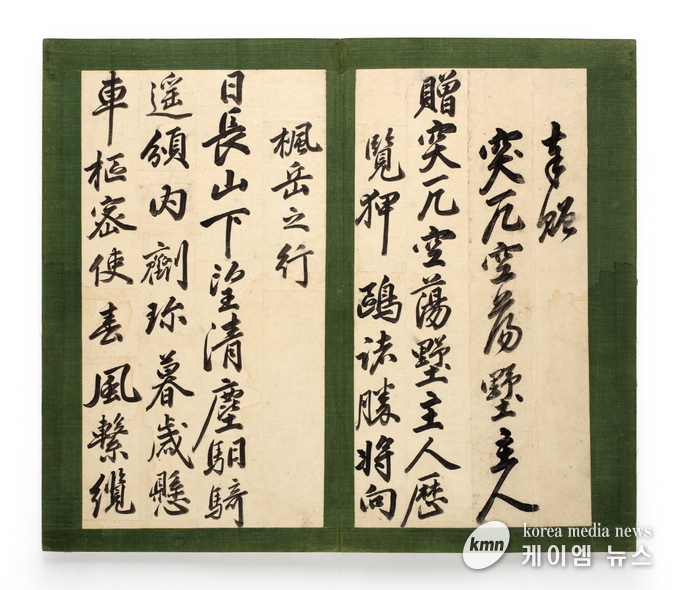 奉贈
突兀空蕩墅主人
贈突兀空蕩墅主人歷
覽狎鷗諸勝將向
楓岳之行
日長山下望清塵馹騎
遥頒內劑珎暮歲懸
車樞密使春風繫纜
kmn korea media news
케이엠 뉴스